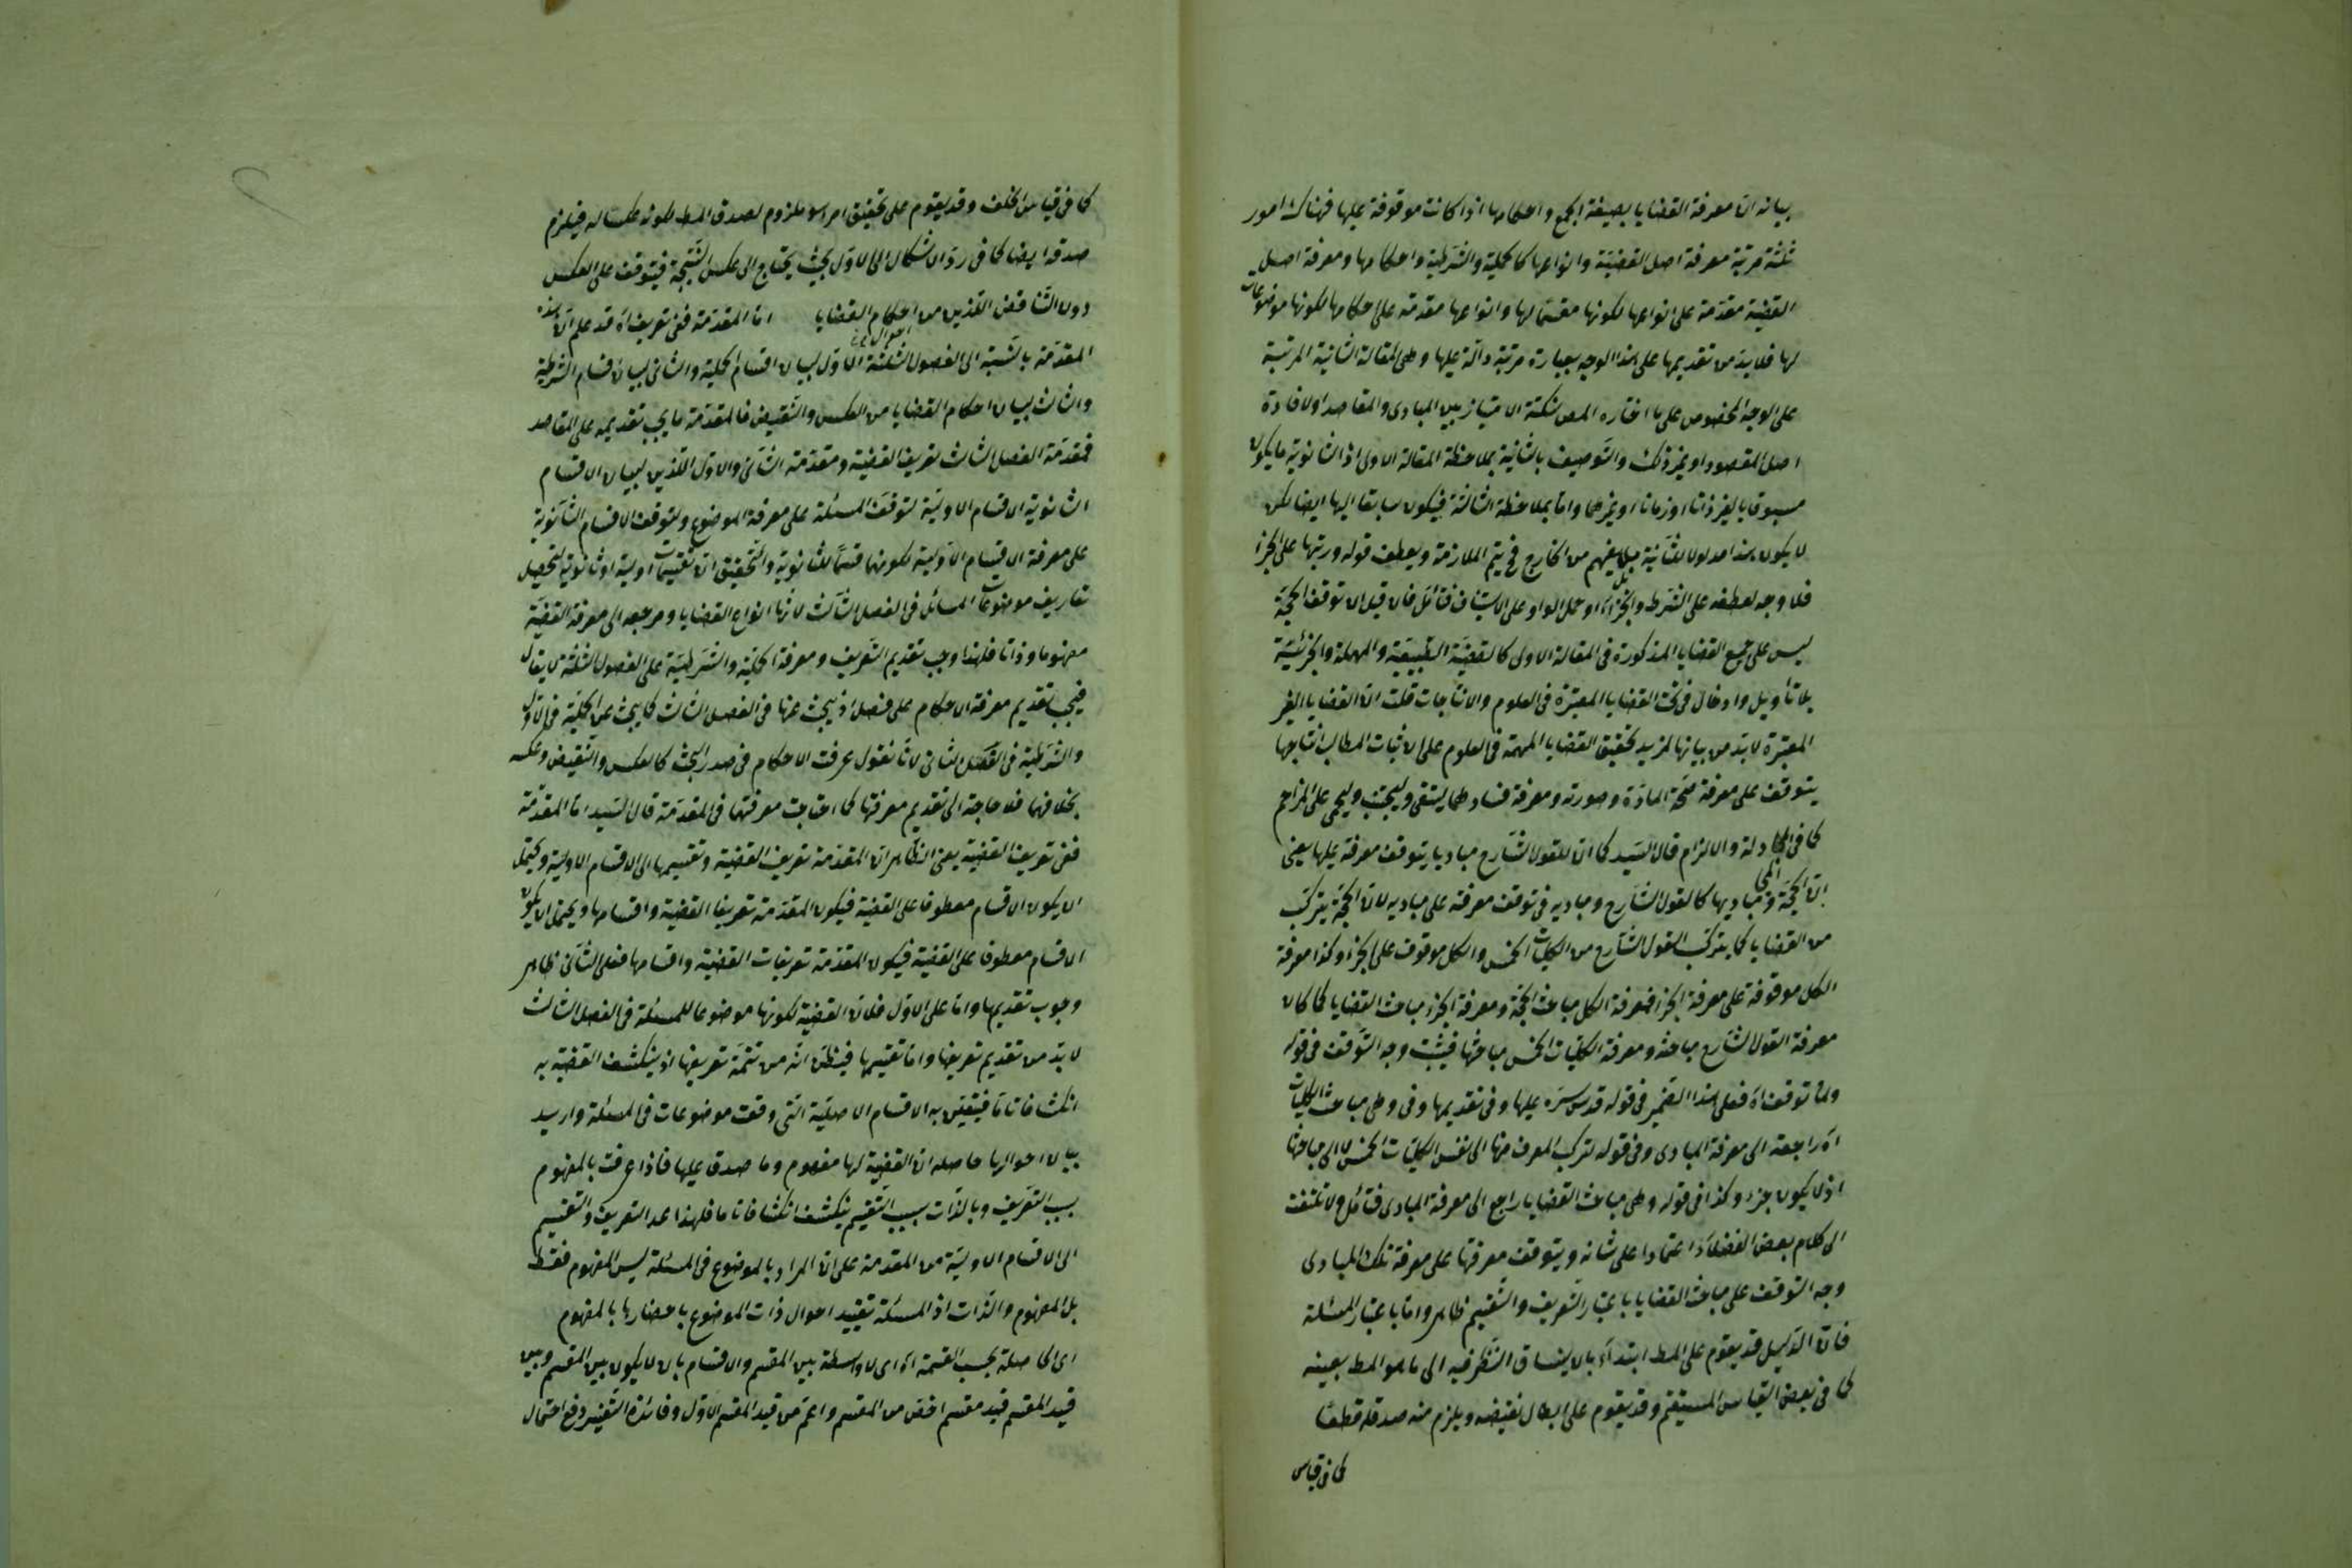 بيانه ان معرفة القضايا بصيغة الجمع واحكامها اذا كانت موقوفة عليها فهناك امور
ثلثة مرتبة معرفة اصل القضية وانواعها كالحملية والشرطية واحكامها ومعرفة اصل
القضية مقدمة على انواعها لكونها مقسما لها وانواعها مقدمة على احكامها لكونها موضوعات
لها فلا بد من تقديمها على هذا الوجه بعبارة مرتبة دالة عليها وهي المقالة الثانية المرتبة
على الوجه المخصوص على ما اختاره المص لنكتة الامتياز بين المبادى والمقاصد او لافادة
اصل المقصود او غير ذلك والتوصيف بالثانية بملاحظة المقالة الاولى اذ الثانوية ما يكون
مسبوقا بالغير ذاتا او زمانا او غيرهما واما بملاحظة الثالثة فيكون سابقا اليها ايضا لكن
لا يكون هذا مدلولا للثانية بل يفهم من الخارج فح يتم الملازمة ويعطف قوله ورتبها على الجزا
فلا وجه لعطفه على الشرط والجزاء او حمل الواو على الاستيناف فتأمل فان قيل لا توقف الحجة
ليس على جميع القضايا المذكورة فى المقالة الاولى كالقضية الطبيعية والمهملة والجزئية
بلا تأويل وادخال فى تحت القضايا المعتبرة فى العلوم والانتاجات قلت ان القضايا الغير
المعتبرة لا بد من بيانها لمزيد تحقيق القضايا المهمة فى العلوم على ان اثبات المطالب بانتاجها
يتوقف على معرفة صحة المادة وصورته ومعرفة فسادهما ليتقى وليجتنب وليحمى على المزاحم
كما فى المجادلة والالزام قال السيد كما ان للقول الشارح مباديا يتوقف معرفة عليها يعنى
ان الحجة ومباديها كالقول الشارح ومباديه فى توقف معرفته على مباديه لان الحجة يتركب
من القضايا كما يتركب القول الشارح من الكليات الخمس والكل موقوف على الجزء وكذا معرفة
الكل موقوفة على معرفة الجزء فمعرفة الكل مباحث الحجة ومعرفة الجزء مباحث القضايا كما كان
معرفة القول الشارح مباحثه ومعرفة الكليات الخمس مباحثها فيثبت وجه التوقف فى قوله
ولما توقف اه فعلى هذا الضمير فى قوله قدس سره عليها وفى تقديمها وفى وهى مباحث الكليات
اه راجعة الى معرفة المبادى وفى قوله لتركب المعرف منها الى نفس الكليات الخمس لا الى مباحثها
اذ لا يكون جزء وكذا فى قوله وهى مباحث القضايا راجع الى معرفة المبادى فتأمل ولا تلتفت
الى كلام بعض الفضلاء اعتمادا على شانه ويتوقف معرفتها على معرفة تلك المبادى
وجه التوقف على مباحث القضايا باعتبار التعريف والتقسيم ظاهر واما باعتبار المسئلة
فان الدليل قد يقوم على المط ابتداء بان يساق النظر فيه الى ما هو المط بعينه
كما فى بعض القياس المستقيم وقد يقوم على ابطال نقيضه ويلزم منه صدقه قطعا
كما فى قياس
كما فى قياس الخلف وقد يقوم على تحقيق امر اخر ملزوم لصدق المط لكونه عكسا له فيلزم
صدقه ايضا كما فى رد الاشكال الى الاول بحيث يحتاج الى عكس النتيجة فيتوقف على العكس
دون التناقض اللذين من احكام القضايا اما المقدمة ففى تعريف اه قد علم ان هذه
المقدمة بالنسبة الى الفصول الثلثة الاول لبيان اقسام الحملية والثانى لبيان اقسام الشرطية
والثالث لبيان احكام القضايا من العكس والنقيض فالمقدمة ما يجب تقديمه على المقاصد
فمقدمة الفصل الثالث تعريف القضية ومقدمة الثانى والاول اللذين لبيان الاقسام
الثانوية الاقسام الاولية لتوقف المسئلة على معرفة الموضوع ولتوقف الاقسام الثانوية
على معرفة الاقسام الاولية لكونهما قسما للثانوية والتحقيق ان تقسيمات اولية او ثانوية لتحصيل
تعاريف موضوعات المسائل فى الفصل الثالث لانها انواع القضايا ومرجعه الى معرفة القضية
مفهوما وذاتا فلهذا وجب تقديم التعريف ومعرفة الحملية والشرطية على الفصول الثلثة لا يقال
فيجب تقديم معرفة الاحكام على فصل اذ يبحث عنها فى الفصل الثالث كما يبحث عن الحملية فى الاول
والشرطية فى الفصل الثانى لانا نقول عرفت الاحكام فى صدر البحث كالعكس والنقيض وعكسه
بخلافهما فلا حاجة الى تقديم معرفتها كما احتاجت معرفتهما فى المقدمة قال السيد اما المقدمة
ففى تعريف القضية يعنى الظاهر ان المقدمة تعريف القضية وتقسيمها الى الاقسام الاولية ويحتمل
ان يكون الاقسام معطوفا على القضية فيكون المقدمة تعريفا القضية واقسامها ويحتمل ان يكون
الاقسام معطوفا على القضية فيكون المقدمة تعريفات القضية واقسامها فعلى الثانى ظاهر
وجوب تقديمها واما على الاول فلان القضية لكونها موضوعا للمسئلة فى الفصل الثالث
لا بد من تقديم تعريفها واما تقسيمها فيظن انه من تتمة تعريفها اذ ينكشف القضية به
انكشافا تاما فيتعين به الاقسام الاصلية التى وقعت موضوعات فى المسئلة واريد
بيان احوالها حاصله ان القضية لها مفهوم وما صدق عليها فاذا عرفت بالمفهوم
بسبب التعريف وبالذات بسبب التقسيم ينكشف انكشافا تاما فلهذا عد التعريف والتقسيم
الى الاقسام الاولية من المقدمة على ان المراد بالموضوع فى المسئلة ليس المفهوم فقط
بل المفهوم والذات اذ المسئلة تقييد احوال ذات الموضوع باحضارها بالمفهوم
اى الحاصلة بحسب القسمة اه اى لا واسطة بين المقسم والاقسام بان لا يكون بين المقسم وبين
قيد المقسم قيد مقسم اخص من المقسم واعم من قيد المقسم الاول وفائدة التفسير دفع احتمال